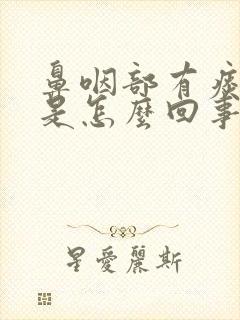 鼻咽部有痰
是怎麼回事
星愛麗斯